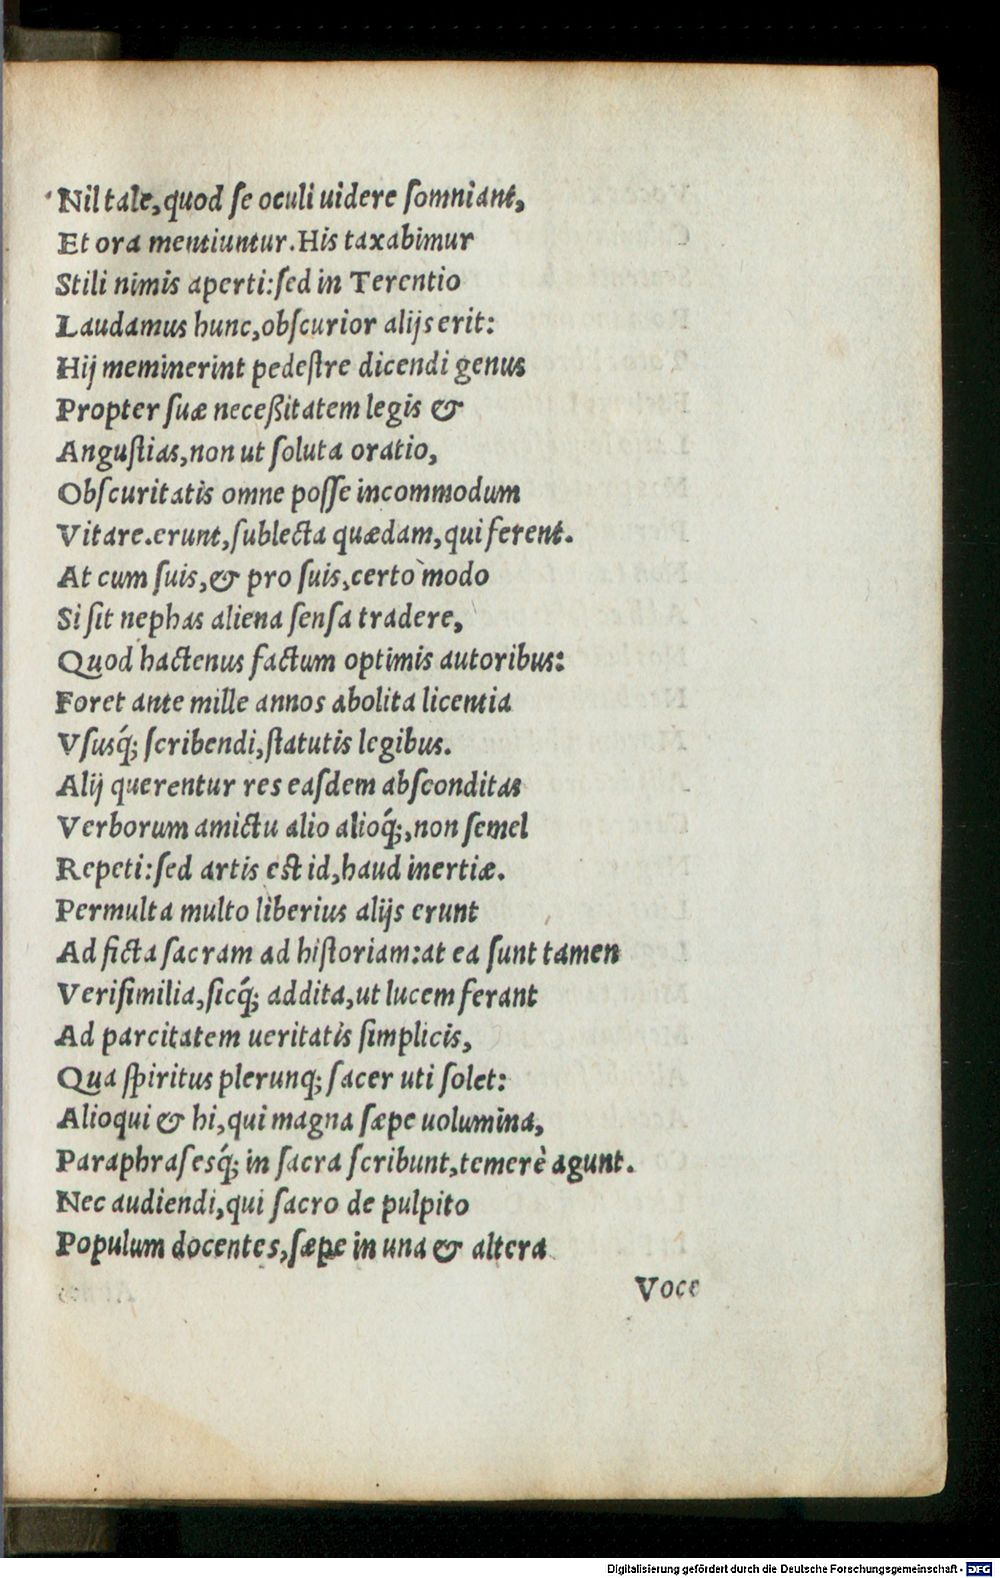 Nil tale, quod ſe oculi uidere ſomniant,
Et ora mentiuntur. His taxabimur
Stili nimis aperti: ſed in Terentio
Laudamus hunc, obſcurior alijs erit:
Hij meminerint pedeſtre dicendi genus
Propter ſuæ neceßitatem legis &
Anguſtias, non ut ſoluta oratio,
Obſcuritatis omne poſſe incommodum
Vitare. erunt, ſublecta quædam, qui ferent.
At cum ſuis, & pro ſuis, certo modo
Si ſit nephas aliena ſenſa tradere,
Quod hactenus factum optimis autoribus:
Foret ante mille annos abolita licentia
Vſusq́; ſcribendi, ſtatutis legibus.
Alij querentur res eaſdem abſconditas
Verborum amictu alio alioq́;, non ſemel
Repeti: ſed artis est id, haud inertiæ.
Permulta multo liberius alijs erunt
Ad ficta ſacram ad hiſtoriam: at ea ſunt tamen
Veriſimilia, ſicq́; addita, ut lucem ferant
Ad parcitatem ueritatis ſimplicis,
Qua ſpiritus plerunq; ſacer uti ſolet:
Alioqui & hi, qui magna ſæpe uolumina,
Paraphraſesq́; in ſacra ſcribunt, temerè agunt.
Nec audiendi, qui ſacro de pulpito
Populum docentes, ſæpe in una & altera
Voce
Digitalisierung gefördert durch die Deutsche Forschungsgemeinschaft - DFG